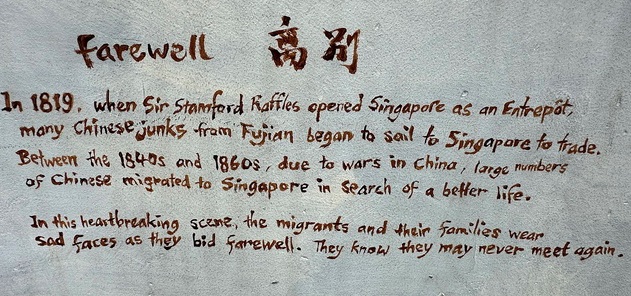 Farewell 离别
In 1819, when Sir Stamford Raffles opened Singapore as an Entrepôt,
many Chinese junks from Fujian began to sail to Singapore to trade.
Between the 1840s and 1860s, due to wars in China, large numbers
of Chinese migrated to Singapore in search of a better life.
In this heartbreaking scene, the migrants and their families wear
sad faces as they bid farewell. They know they may never meet again.